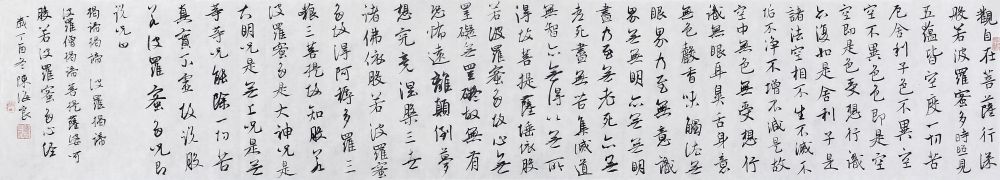 觀自在菩薩行深
般若波羅蜜多時照見
五蘊皆空度一切苦
厄舍利子色不異空
空不異色色即是空
空即是色受想行識
亦復如是舍利子是
諸法空相不生不滅不
垢不淨不增不減是故
空中無色無受想行
識無眼耳鼻舌身意
無色聲香味觸法無
眼界乃至無意識
界無無明亦無無明
盡乃至無老死亦無
老死盡無苦集滅道
無智亦無得以無所
得故菩提薩埵依般
若波羅蜜多故心無
罣礙無罣礙故無有
恐怖遠離顛倒夢
想究竟涅槃三世
諸佛依般若波羅蜜
多故得阿耨多羅三
藐三菩提故知般若
波羅蜜多是大神咒是
大明咒是無上咒是無
等等咒能除一切苦
真實不虛故說般
若波羅蜜多咒即
說咒曰
揭諦揭諦 波羅揭諦
波羅僧揭諦菩提薩婆訶
般若波羅蜜多心經
歲丁酉冬陳海良